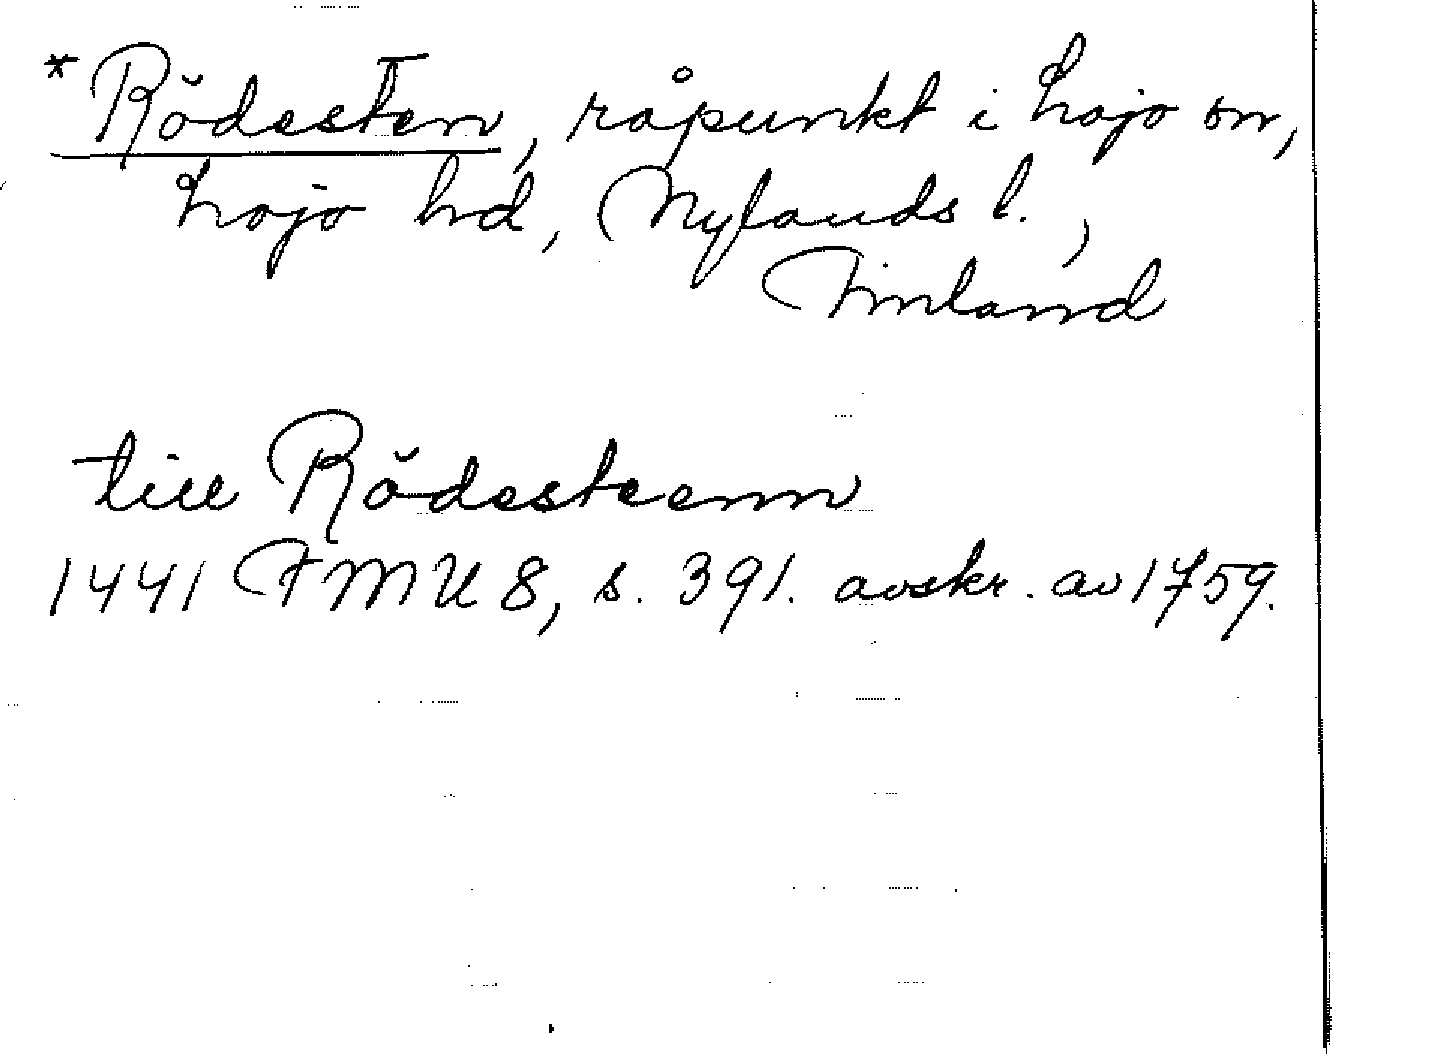 *Rödesten, råpunkt i Lojo sn,
Lojo hd, Nylands l.,
Finland
till Rödesteenn
1441 FMU 8, s. 391. avskr. av 1759.